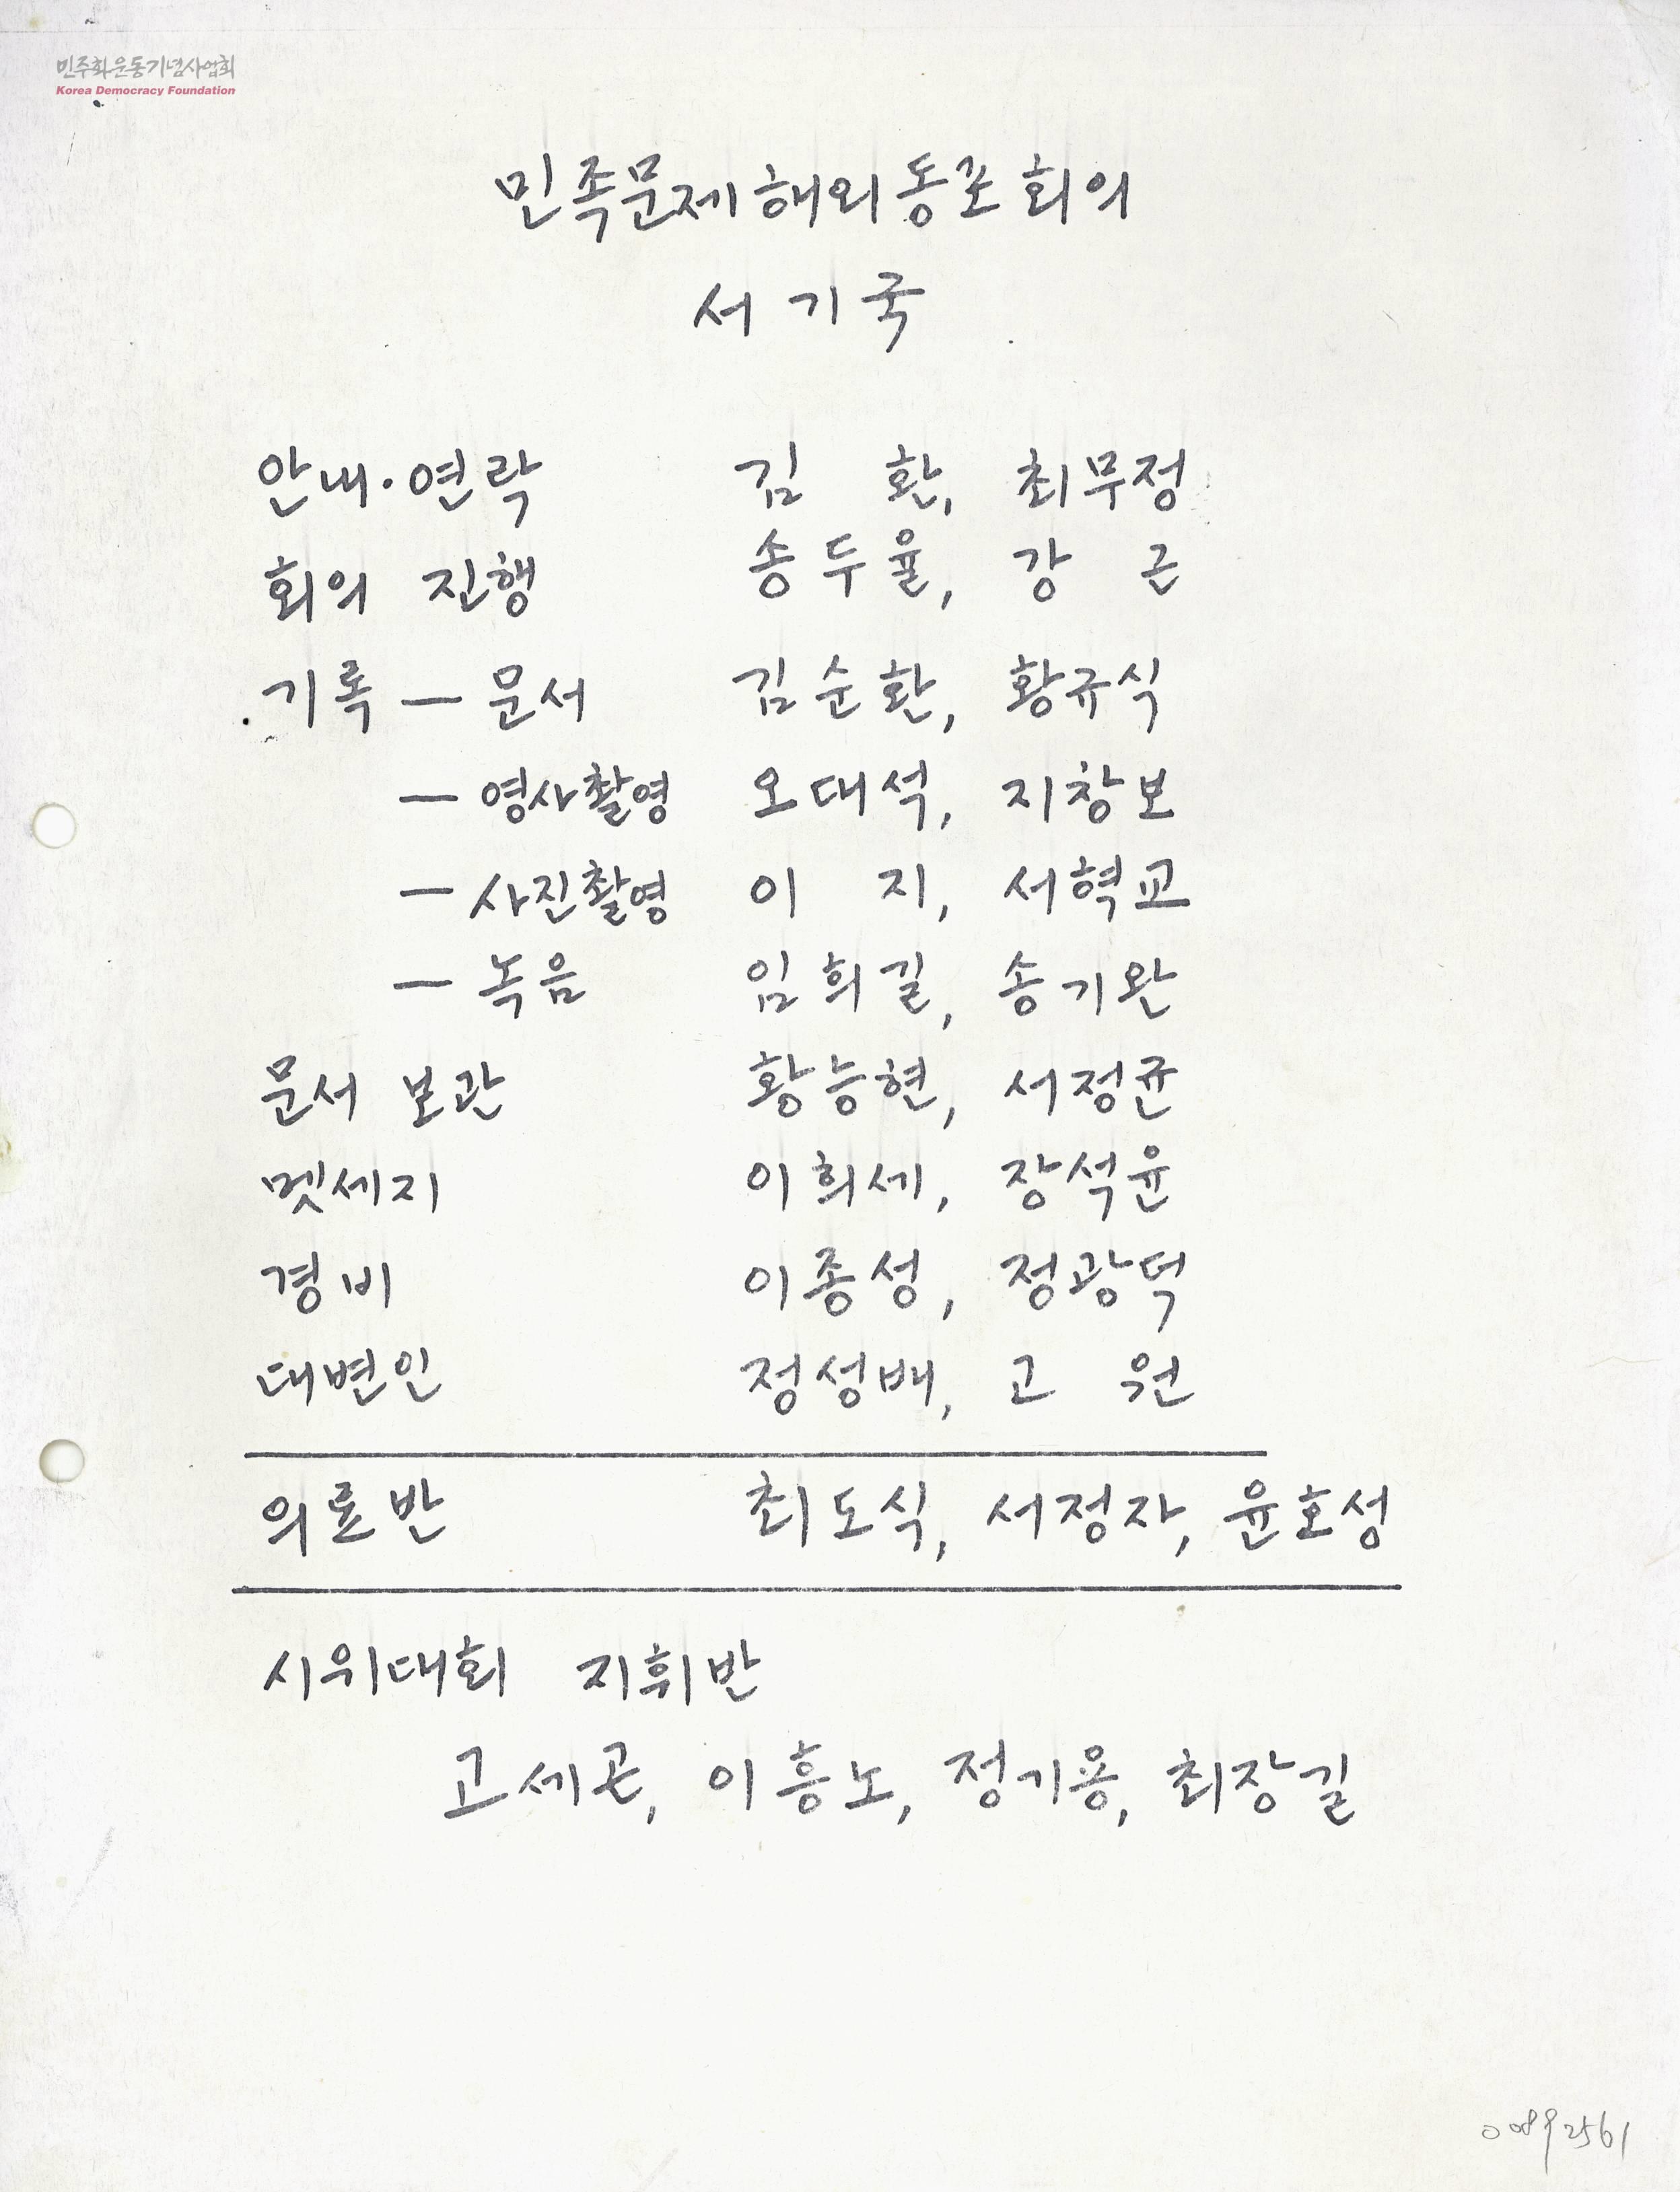 민주화운동기념사업회
Korea Democracy Foundation
민족문제 해외동포 회의
서기국
안내·연락 김 환, 최무정
회의 진행 송두율, 강 근
기록 — 문서 김순환, 황규식
— 영사촬영 오대석, 지창보
— 사진촬영 이 지, 서혁교
— 녹음 임희길, 송기완
문서 보관 황능현, 서정균
멧세지 이희세, 장석윤
경비 이종성, 정광덕
대변인 정성배, 고 원
의료반 최도식, 서정자, 윤호성
시위대회 지휘반
고세곤, 이흥노, 정기용, 최장길
00892561